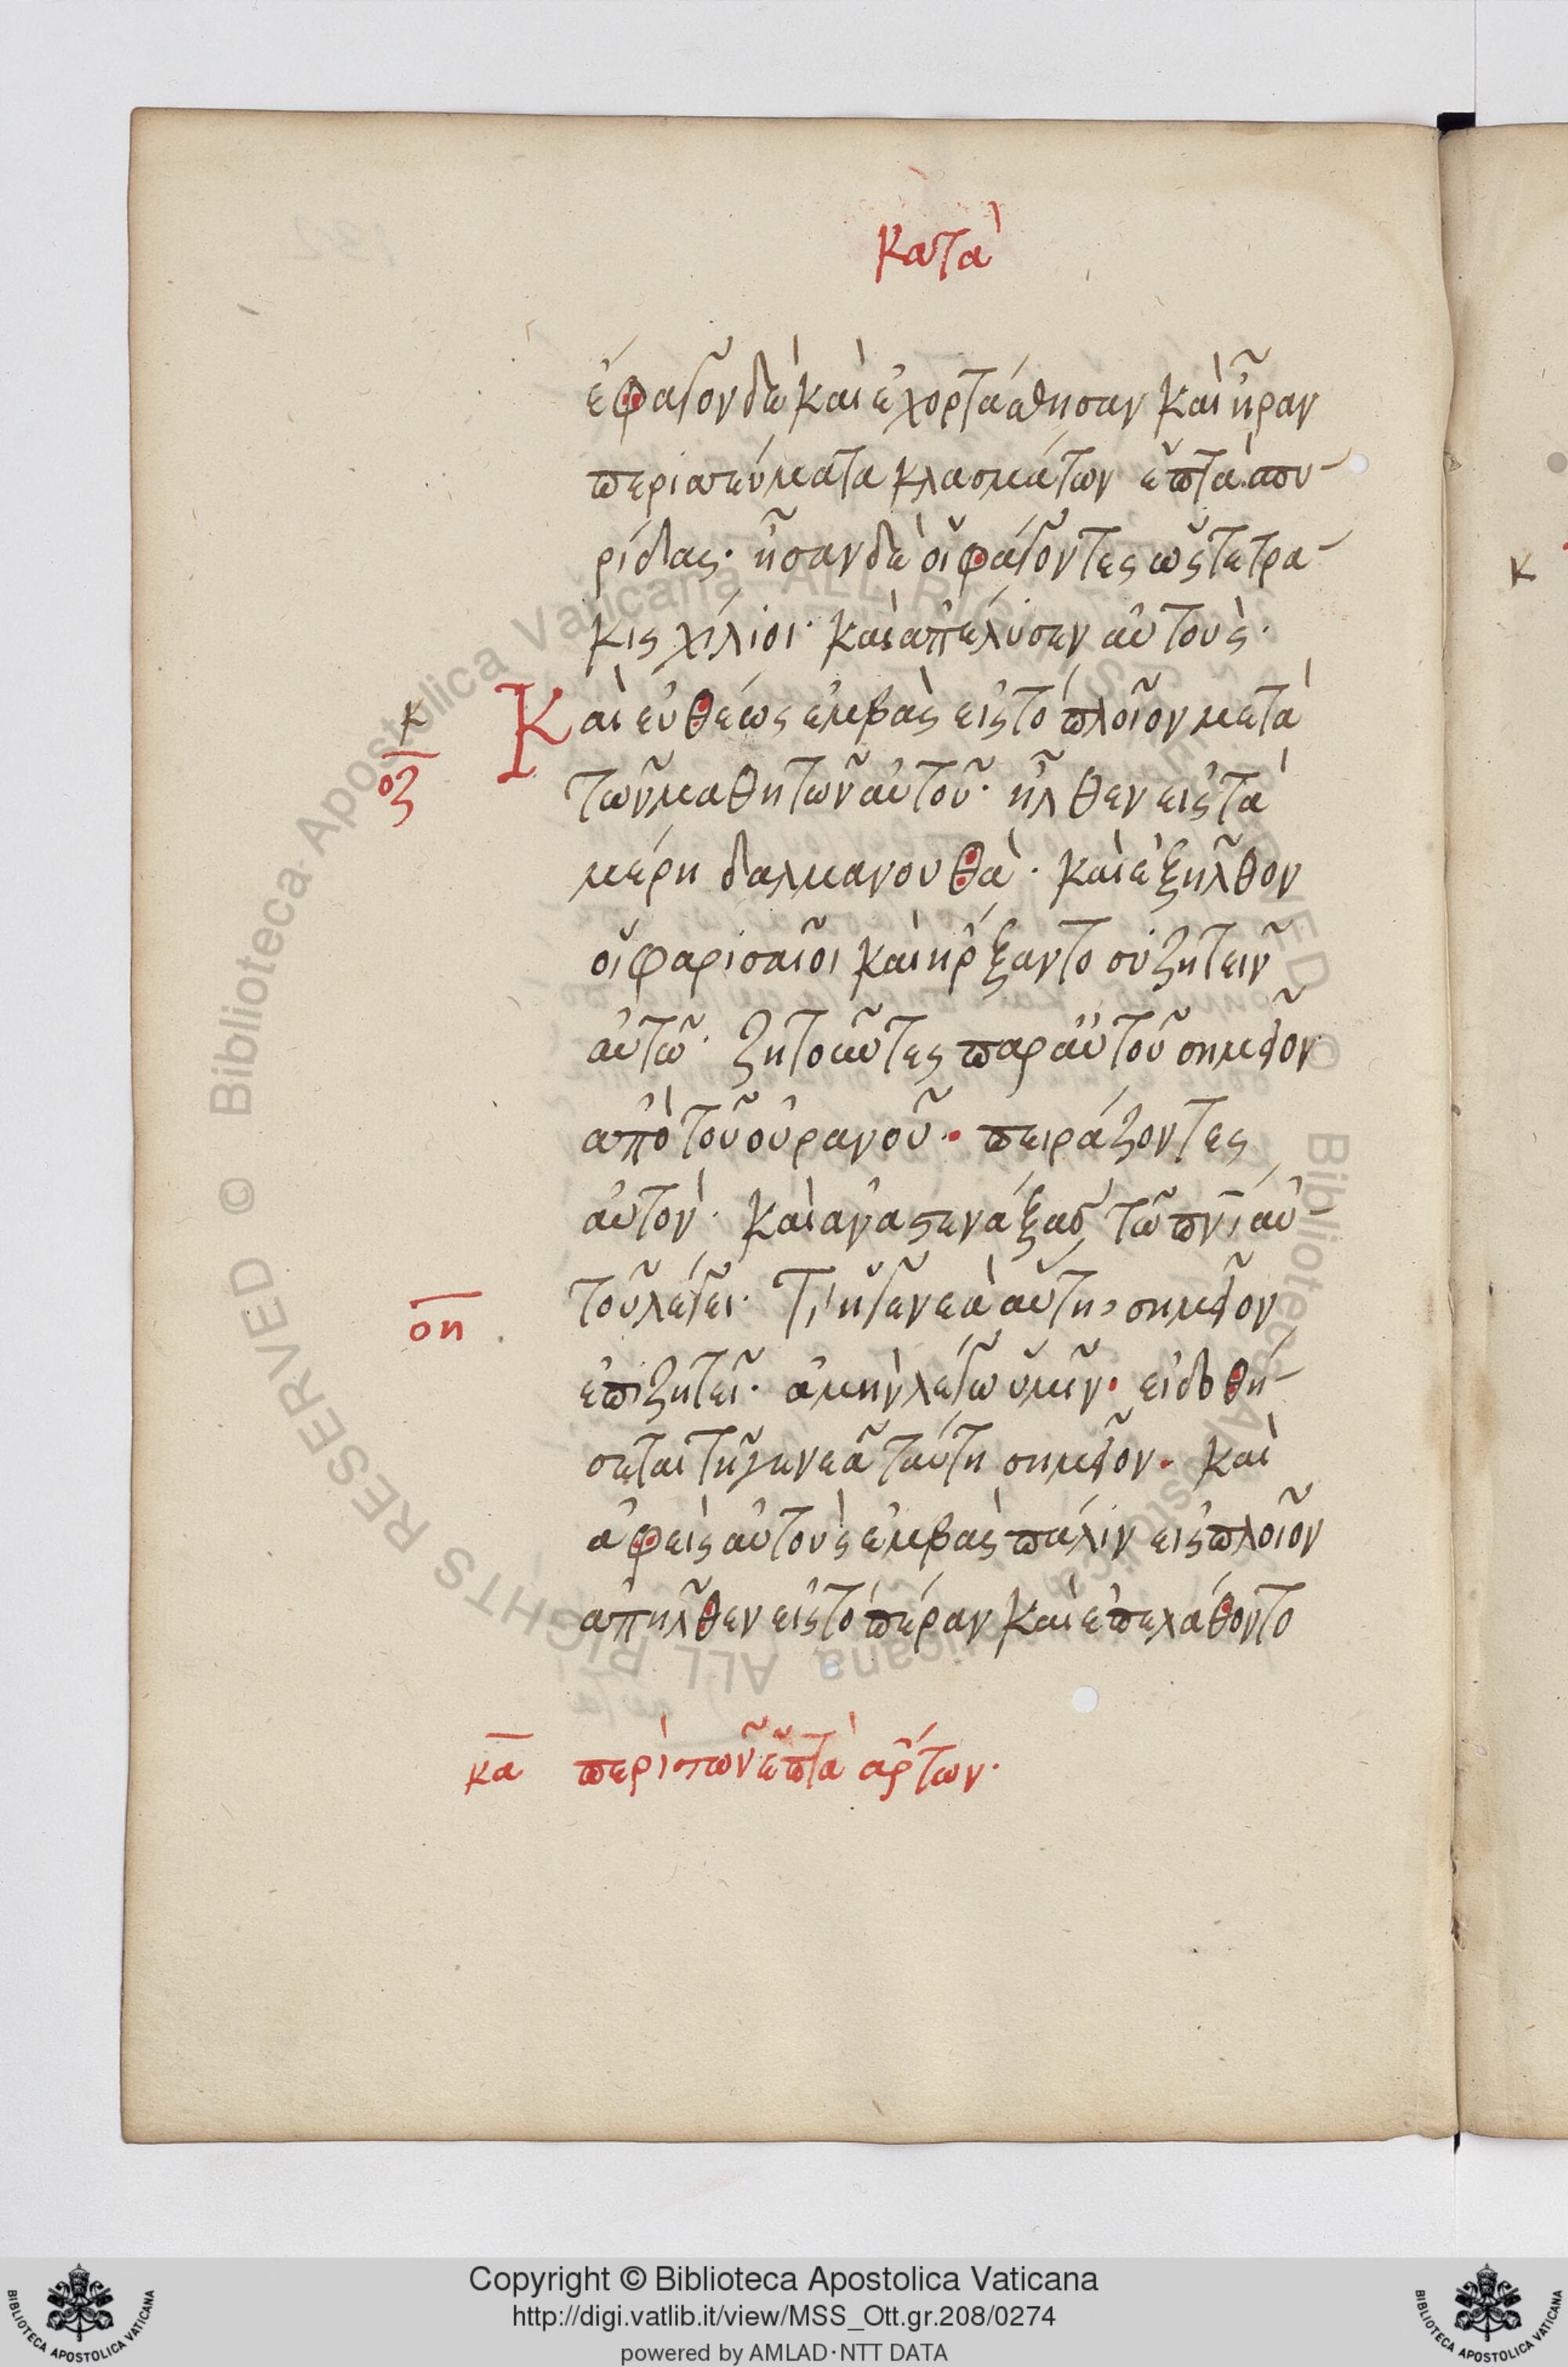 κατὰ
ἔφαγον δὲ καὶ ἐχορτάσθησαν καὶ ἦραν
περισεύματα κλασμάτων ἑπτὰ σπυ-
ρίδας· ἦσαν δὲ οἱ φαγόντες ὡς τετρα-
κις χίλιοι· καὶ ἀπέλυσεν αὐτούς·
κ
Καὶ εὐθέως ἐμβὰς εἰς τὸ πλοῖον μετὰ
οζ
τῶν μαθητῶν αὐτοῦ· ἦλθεν εἰς τὰ
μέρη δαλμανουθά· καὶ ἐξῆλθον
οἱ φαρισαῖοι καὶ ἤρξαντο συζητεῖν
αὐτῶ· ζητοῦντες παρ αὐτοῦ σημεῖον
ἀπὸ τοῦ οὐρανοῦ· πειράζοντες
αὐτόν· καὶ ἀναστενάξας τῶ πνι αὐ-
τοῦ λέγει· Τί ἡ γενεὰ αὕτη, σημεῖον
οη
ἐπιζητεῖ· ἀμὴν λέγω ὑμῖν· εἰ δοθή-
σεται τῆ γενεᾶ ταύτη σημεῖον· καὶ
ἀφεὶς αὐτοὺς ἐμβὰς πάλιν εἰς πλοῖον
ἀπῆλθεν εἰς τὸ πέραν καὶ ἐπελάθοντο
κα περὶ τῶν ἑπτὰ ἄρτων·
κ
Copyright © Biblioteca Apostolica Vaticana
http://digi.vatlib.it/view/MSS_Ott.gr.208/0274
powered by AMLAD·NTT DATA
BIBLIOTECA APOSTOLICA VATICANA
BIBLIOTECA APOSTOLICA VATICANA
© Biblioteca Apostolica Vaticana ALL RIGHTS RESERVED
© Biblioteca Apostolica Vaticana ALL RIGHTS RESERVED